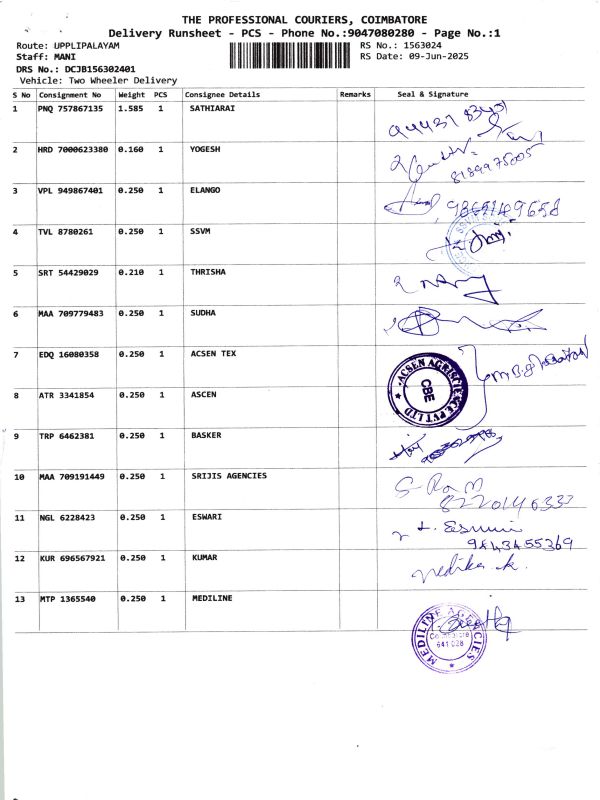 THE PROFESSIONAL COURIERS, COIMBATORE
Delivery Runsheet - PCS - Phone No.:9047080280 - Page No.:1
Route: UPPLIPALAYAM
RS No.: 1563024
Staff: MANI
RS Date: 09-Jun-2025
DRS No.: DCJB156302401
Vehicle: Two Wheeler Delivery
S No Consignment No Weight PCS Consignee Details Remarks Seal & Signature
1 PNQ 757867135 1.585 1 SATHIARAI
2 HRD 7000623380 0.160 1 YOGESH
8189975005
3 VPL 949867401 0.250 1 ELANGO
4 TVL 8780261 0.250 1 SSVM
5 SRT 54429029 0.210 1 THRISHA
6 MAA 709779483 0.250 1 SUDHA
7 EDQ 16080358 0.250 1 ACSEN TEX
ACSEN AGRISCIENCE PVT LTD
CBE
8 ATR 3341854 0.250 1 ASCEN
9 TRP 6462381 0.250 1 BASKER
10 MAA 709191449 0.250 1 SRIJIS AGENCIES
S- Ram
8220146333
11 NGL 6228423 0.250 1 ESWARI
9443455369
12 KUR 696567921 0.250 1 KUMAR
nedika.k.
13 MTP 1365540 0.250 1 MEDILINE
MEDILINE AGENCIES
Coimbatore
641 028